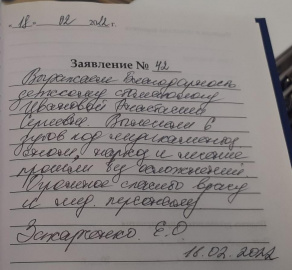 "18" 02 2022 г.
Заявление № 42
Выражаем благодарность
детскому стоматологу
Ивановой Анастасии
Сергеевне. Вылечили 6
зубов под медикаментоз
сном, наркоз и лечение
прошли без осложнений
Огромное спасибо врачу
и мед. персоналу
Захарченко Е.О.
18.02.2022